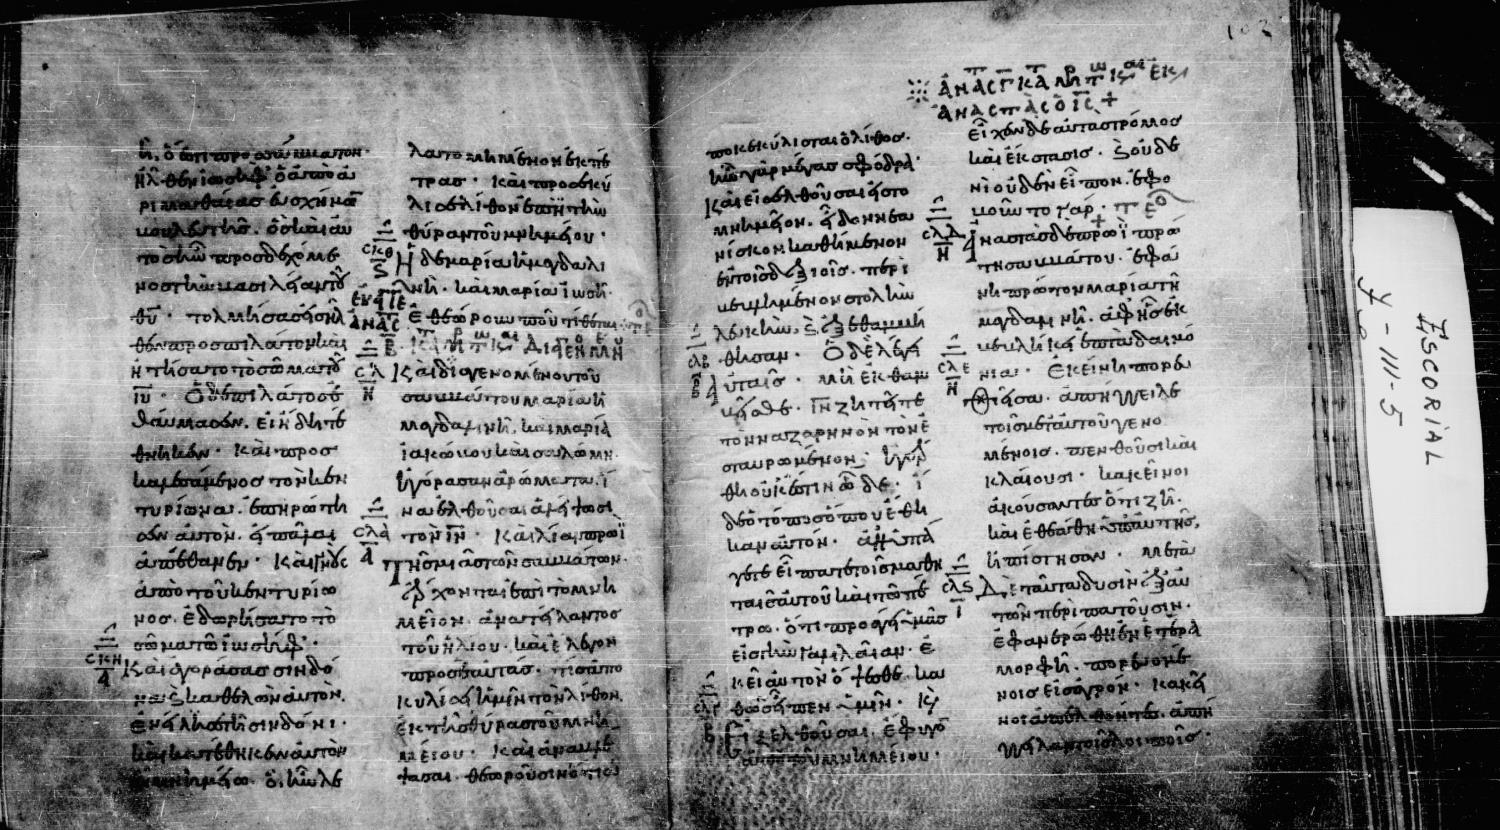 ἦλθεν ἰωσὴφ ὁ ἀπὸ ἀ
ριμαθαίας εὐσχήμ
βουλευτὴς. ὃς καὶ αὐ
τὸς ἦν προσδεχόμε
νος τὴν βασιλείαν τοῦ
θυ. τολμήσας εἰσῆλ
θεν προς πιλάτον καὶ
ἠτήσατο τὸ σῶμα τοῦ
ιυ. Ὁ δὲ πιλάτος ἐ
θαύμασεν. εἰ ἤδη τέ
θνηκεν. καὶ προσ
καλεσάμενος τὸν κεν
τυρίωνα. ἐπηρώτη
σεν αὐτὸν. εἰ πάλαι
ἀπέθανεν. Καὶ γνοὺς
ἀπὸ τοῦ κεντυρίω
νος. ἐδωρήσατο τὸ
σῶμα τῶ ἰωσήφ.
Καὶ ἀγοράσας σινδό
να καὶ καθελὼν αὐτὸν.
ἐνείλησε τῆ σινδόνι.
καὶ κατέθηκεν αὐτὸν
λατομημένον ἐκ πέ
τρας. Καὶ προσεκύ
λισε λίθον ἐπὶ τὴν
θύραν τοῦ μνημείου.
Ἡ δὲ μαρία ἡ μαγδαλι
νὴ. καὶ μαρία ἰωσῆ.
ἐθεώρουν ποῦ τίθεται
Καὶ διαγενομένου τοῦ
σαββάτου μαρία ἡ
μαγδαληνὴ. καὶ μαρία
ἰακώβου καὶ σαλώμη.
ἠγόρασαν ἀρώματα. ἵ
να ἐλθοῦσαι ἀλείψωσι
τὸν ιν. Καὶ λίαν πρωῒ
τῆς μιᾶς τῶν σαββάτων.
ἔρχονται ἐπὶ τὸ μνη
μεῖον. ἀνατείλαντος
τοῦ ἡλίου. καὶ ἔλεγον
προς ἑαυτάς. τίς ἀπο
κυλίσει ἡμῖν τὸν λίθον
ἐκ τῆς θύρας τοῦ μνη
μείου. Καὶ ἀναβλέ
ψασαι. θεωροῦσιν ὅτι
ποκεκύλισται ὁ λίθος.
ἦν γὰρ μέγας σφόδρα.
Καὶ εἰσελθοῦσαι εἰς τὸ
μνημεῖον. εἶδον νεα
νίσκον καθήμενον
ἐν τοῖς δεξιοῖς. περι
βεβλημένον στολὴν
λευκὴν. καὶ ἐξεθαμβή
θησαν. Ὁ δὲ λέγει
αὐταῖς. μὴ ἐκθαμ
βεῖσθε. ιν ζητεῖτε
τὸν ναζαρηνὸν τὸν ἐ
σταυρωμένον. ἠγέρ
θη οὐκ ἔστιν ὧδε. ἴ
δε ὁ τόπος ὅπου ἔθη
καν αὐτὸν. ἀλλ ὑπά
γετε εἴπατε τοῖς μαθη
ταῖς αὐτοῦ καὶ τῶ πέ
τρω. ὅτι προάγει ὑμᾶς
εἰς τὴν γαλιλαίαν. ἐ
κεῖ αὐτὸν ὄψεσθε. κα
θὼς εἶπεν ὑμῖν. Κὶ
ἐξελθοῦσαι. ἔφυγο
ἀπὸ τοῦ μνημείου.
εἶχεν δὲ αὐτὰς τρόμος
καὶ ἔκστασις. καὶ οὐδε
νὶ οὐδὲν εἶπον. ἐφο
βοῦντο γάρ.
Ἀναστὰς δὲ πρωῒ πρώ
τη σαββάτου. ἐφά
νη πρῶτον μαρία τῆ
μαγδαληνῆ. ἀφ ἧς ἐκ
βεβλήκει ἑπτὰ δαιμό
νια. Ἐκείνη πορευ
θεῖσα. ἀπήγγειλε
τοῖς μετ αὐτοῦ γενο
μένοις. πενθοῦσι καὶ
κλαίουσι. κἀκεῖνοι
ἀκούσαντες ὅτι ζῆ.
καὶ ἐθεάθη ὑπ αὐτῆς,
ἠπίστησαν. Μετὰ
δὲ ταῦτα δυσὶν ἐξ αὐ
τῶν περιπατοῦσιν.
ἐφανερώθη ἐν ἑτέρα
μορφῆ. πορευομέ
νοις εἰς ἀγρόν. Κἀκεῖ
νοι ἀπελθόντες. ἀπή
γγειλαν τοῖς λοιποῖς.
ESCORIAL
Y-III-5